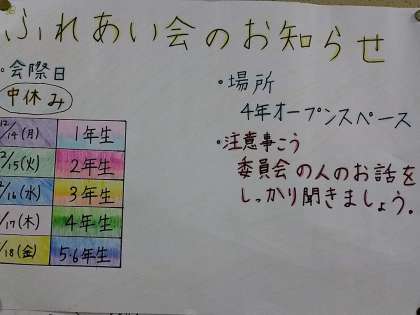 ふれあい会のお知らせ
・会際日
中休み
12/14(月) 1年生
12/15(火) 2年生
12/16(水) 3年生
/17(木) 4年生
/18(金) 5.6年生
・場所
4年オープンスペース
・注意事こう
委員会の人のお話を
しっかり聞きましょう。